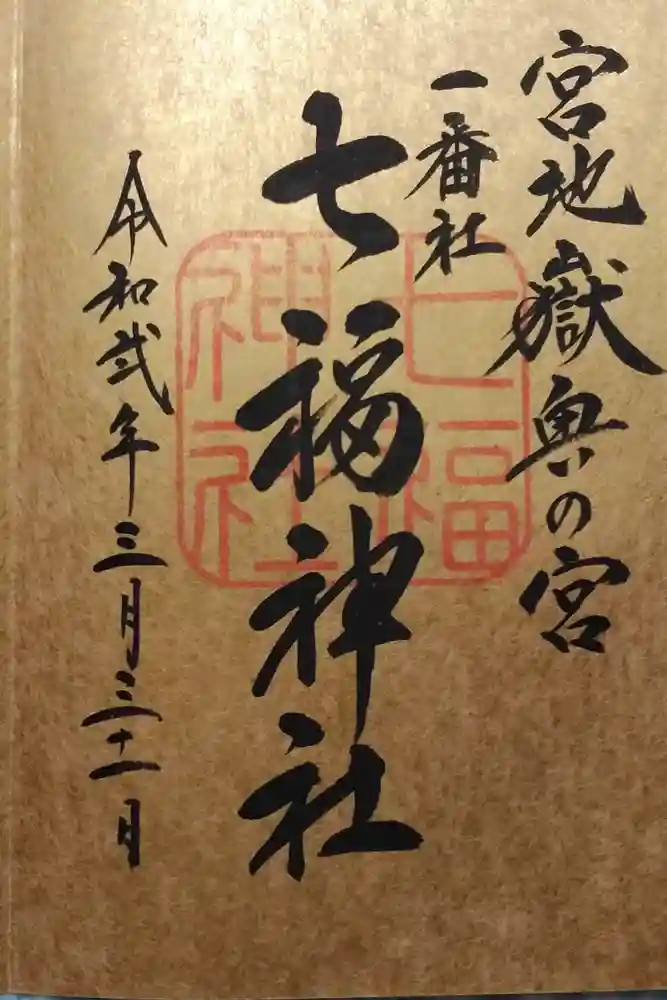 宮地嶽奥の宮
一番社
七福神社
令和弐年三月三十一日
七福
神社